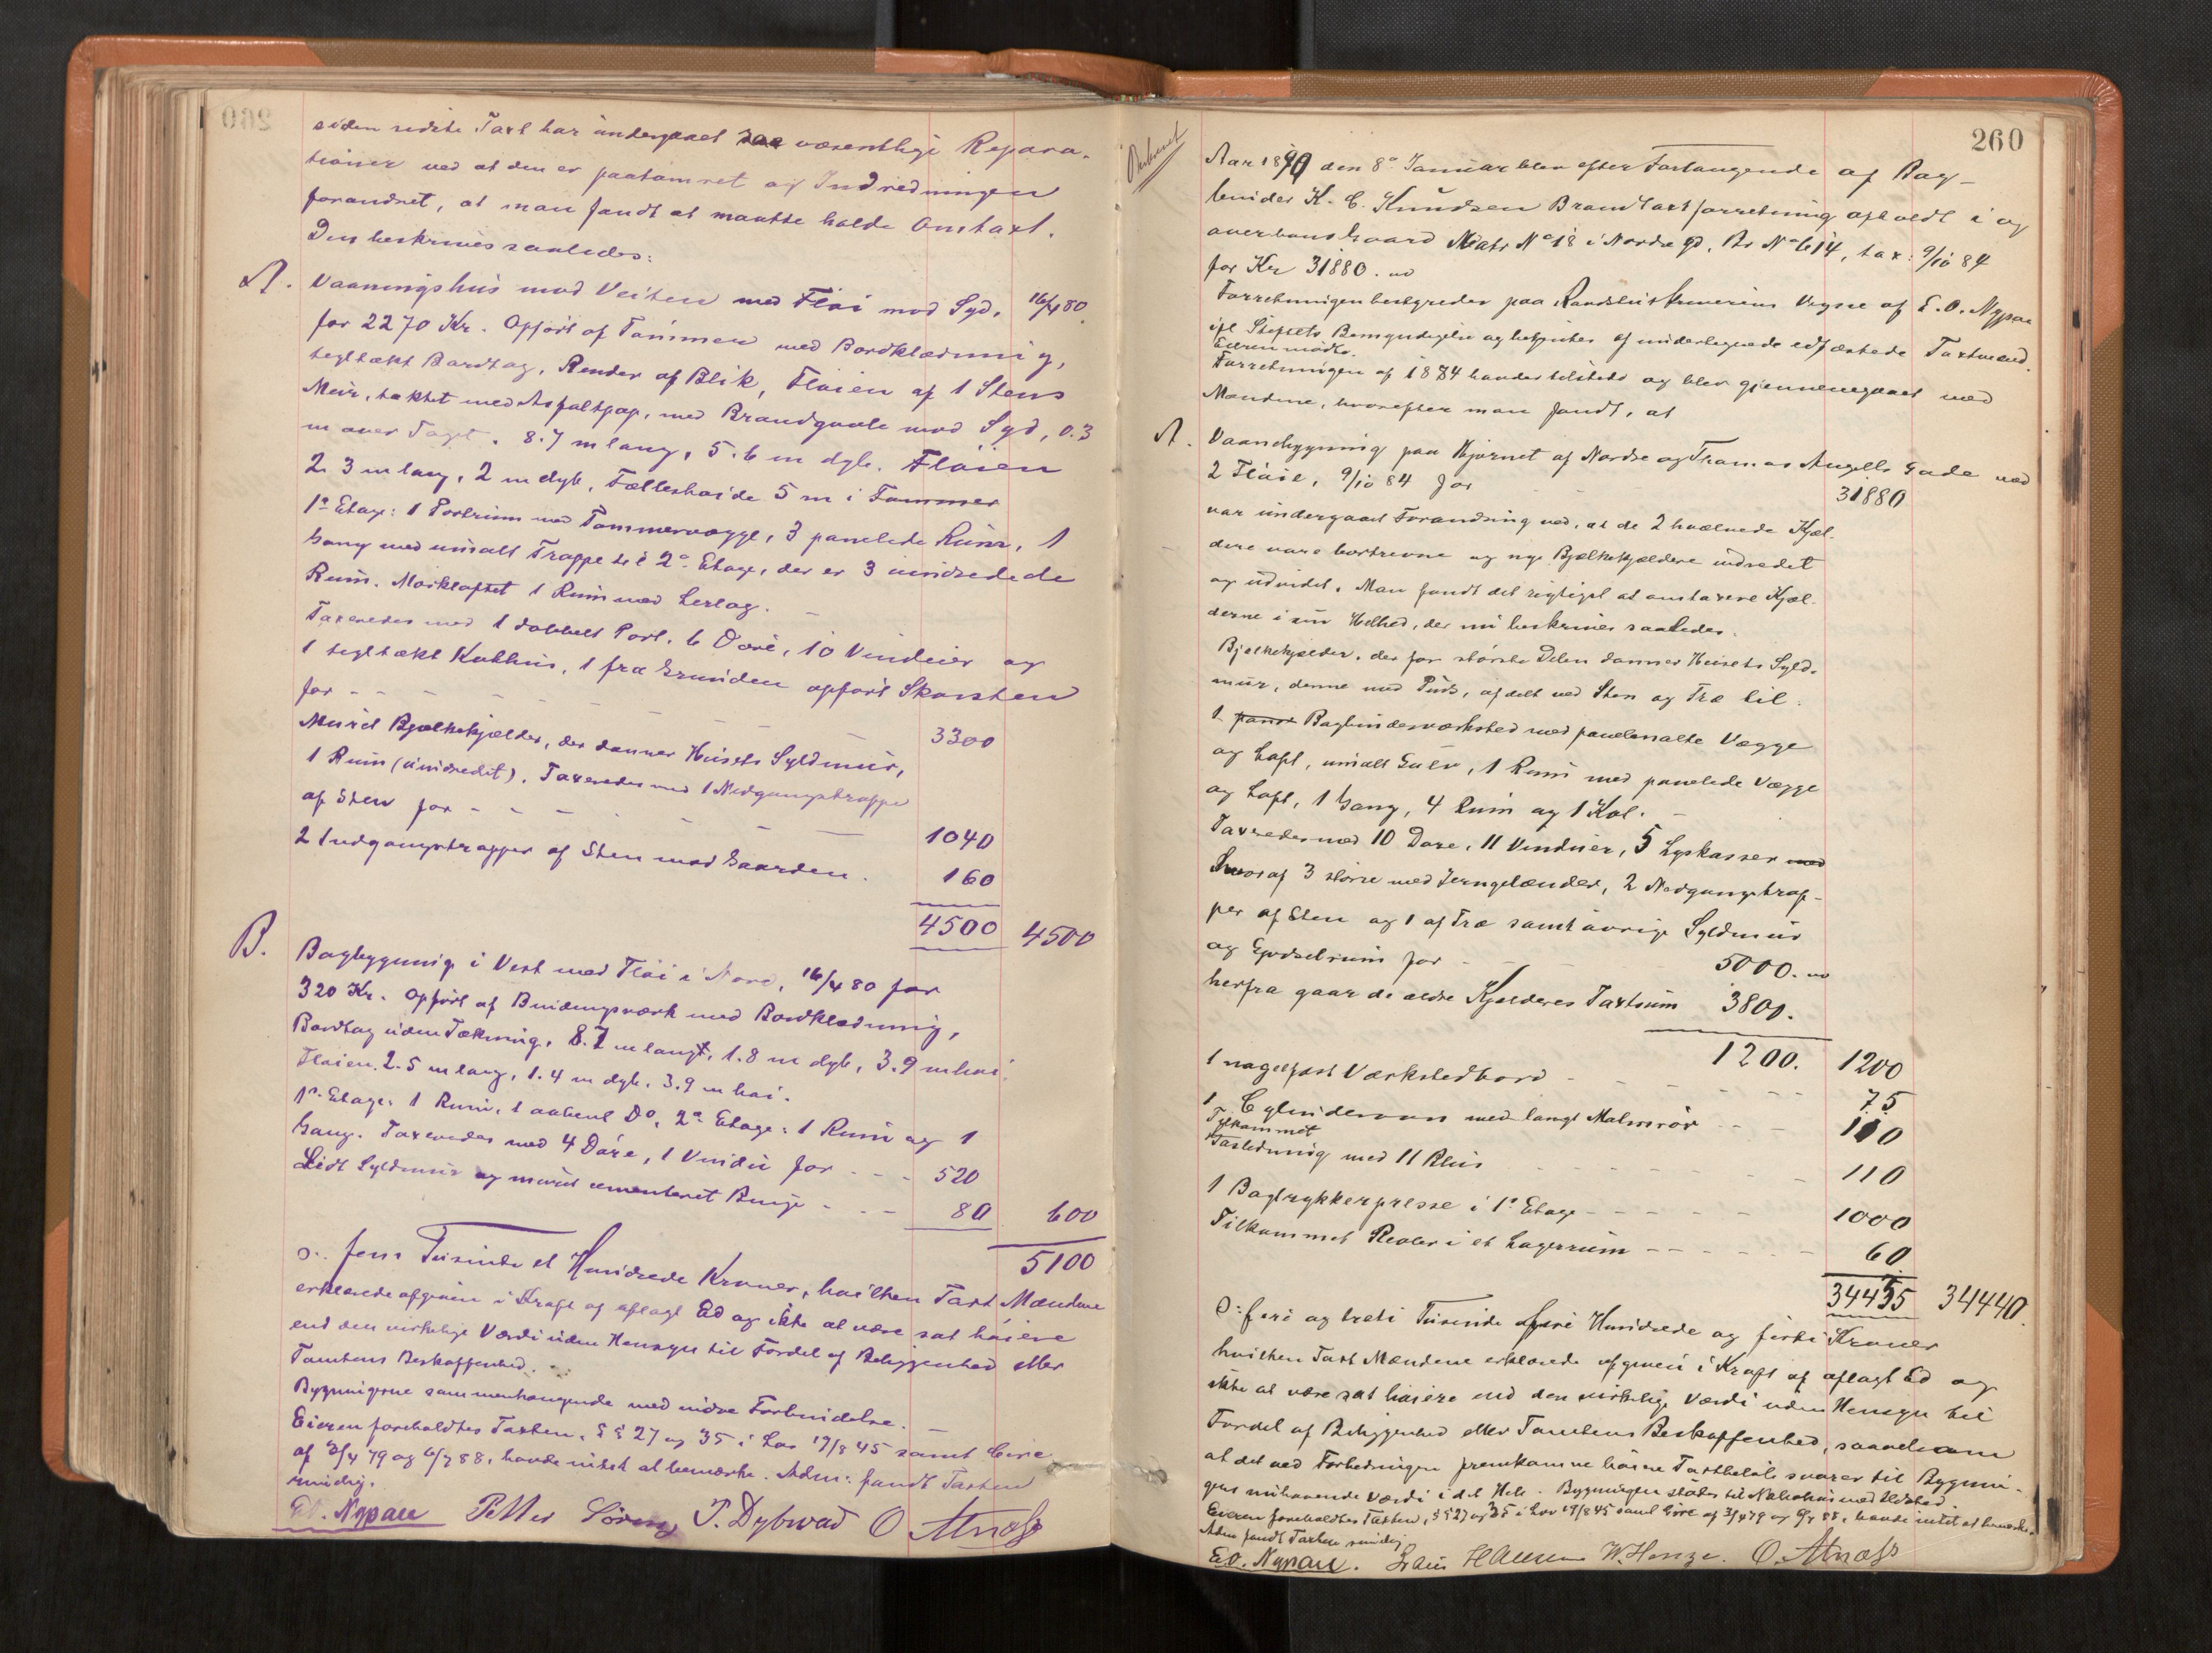 siden sidste Taxt har undergaaet saa væsentlige Repara-
tioner ved at den er paatømret og Indredningen
forandret, at man fandt at maatte holde Omtaxt.
Den beskrives saaledes:
A. Vaaningshus mod Veiten med Fløi mod Syd, 16/4 80
for 2270 Kr. Opført af Tømmer med Bordklædning,
tegltækt Bordtag, Render af Blik, Fløien af 1 Stens
Mur, tækket med Asfaltpap, med Brandgavle mod Syd, 0.3
m over Taget. 8.7 m lang, 5.6 m dyb. Fløien
2.3 m lang, 2 m dyb, Fælleshøide 5 m i Tømmer
1e Etage: 1 Portrum med Tømmervægge, 3 panelede Rum, 1
Gang med umalt Trappe til 2e Etage, der er 3 uindredede
Rum. Mørkloftet 1 Rum med Lerlag.
Taxeredes med 1 dobbelt Port, 6 Døre, 10 Vinduer og
1 tegltækt Kathus, 1 fra Grunden opført Skorsten
for - - - - - - - 3300
Muret Bjælkekjælder, der danner Husets Syldmur,
1 Rum (uindredet). Taxeredes med 1 Nedgangstrappe
af Sten for - - - - - - 1040
2 Indgangstrapper af Sten mod Gaarden. 160
4500 4500
B. Bagbygning i Vest med Fløi i Nord, 16/4 80 for
320 Kr. Opført af Bindingsværk med Bordklædning,
Bordtag uden Tækning, 8.7 m langt, 1.8 m dyb, 3.9 m høi.
Fløien 2.5 m lang, 1.4 m dyb, 3.9 m høi.
1e Etage: 1 Rum, 1 aabent Do, 2e Etage: 1 Rum og 1
Gang. Taxeredes med 4 Døre, 1 Vindu for - - - 520
Lidt Syldmur og muret cementeret Binge - - - 80 600
5100
o: fem Tusinde et Hundrede Kroner, hvilken Taxt Mændene
erklærede afgiven i Kraft af aflagt Ed og ikke at være sat høiere
end den virkelige Værdi uden Hensyn til Fordel af Beliggenhed eller
Tomtens Beskaffenhed.
Bygningerne sammenhængende med indre Forbindelse.
Eieren foreholdtes Taxten, §§ 27 og 35 i Lov 19/8 45 samt Circ
af 3/4 79 og 6/7 88, havde intet at bemærke. Adm: fandt Taxten
rimelig.
E.O. Nypan Petter T. Dybwad O Atnæss
260
Aar 1890 den 8e Januar blev efter Forlangende af Bog-
binder K. C. Knudsen Brandtaxtforretning afholdt i og
over hans Gaard Matr No 18 i Nordre gd, Br No 614, tax: 9/10 84
for Kr 31880.
Forretningen bestyredes paa Vegne af E.O. Nypan
ifl Stiftets Bemyndigelse og betjentes af underlegnede edfæstede Taxtmænd.
Eieren mødte.
Forretningen af 1884 havdes tilstede og blev gjennemgaaet med
Mændene, hvorefter man fandt, at
A. Vaanebygning paa Hjørnet af Nordre og Thomas Angells Gade med
2 Fløie, 9/10 84 for - - - 31880
var undergaaet Forandring ved, at de 2 hvælvede Kjæl-
dere vare bortrevne og nye Bjælkekjældere indredet
og udvidet. Man fandt det rigtigst at omtaxere Kjæl-
derne i sin Helhed, der nu beskrives saaledes:
Bjælkekjælder, der for største Delen danner Husets Syld-
mur, denne med Puds, afdelt ved Sten og Træ til:
1 Bogbinderværksted med panelmalte Vægge
og Loft, umalt Gulv, 1 Rum med panelede Vægge
og Loft, 1 Gang, 4 Rum og 1 Kot.
Taxeredes med 10 Døre, 11 Vinduer, 5 Lyskasser med
hvoraf 3 større med Jerngelænder, 2 Nedgangstrap-
per af Sten og 1 af Træ samt øvrige Syldmur
og for - - - 5000.
herfra gaar de ældre Kjælderes Taxtsum 3800.
1200. 1200
1 nagelfast Værkstedbord - - - - - 75
1 Cylinderovn med langt Malmrør - - 110
Tilkommet
Gasledning med 11 Blus - - - - 110
1 Bogtrykkerpresse i 1e Etage - - - - 1000
Tilkommet Reoler i et Lagerrum - - - - 60
34435 34440.
o: fire og treti Tusinde fire Hundrede og firti Kroner
hvilken Taxt Mændene erklærede afgiven i Kraft af aflagt Ed og
ikke at være sat høiere end den virkelige Værdi uden Hensyn til
Fordel af Beliggenhed eller Tomtens Beskaffenhed, saavelsom
at det ved Forbedringen fremkomne høiere Taxtbeløb svarer til Bygnin-
gens nuhavende Værdi i det Hele. Bygningen støder til Nabohus med Ildsted.
Eieren foreholdtes Taxten, §§ 27 og 35 i Lov 19/8 45 samt Circ af 3/4 79 og 6/7 88, havde intet at bemærke.
Adm fandt Taxten rimelig
E.O. Nypan. W. Henze. O. Atnæss